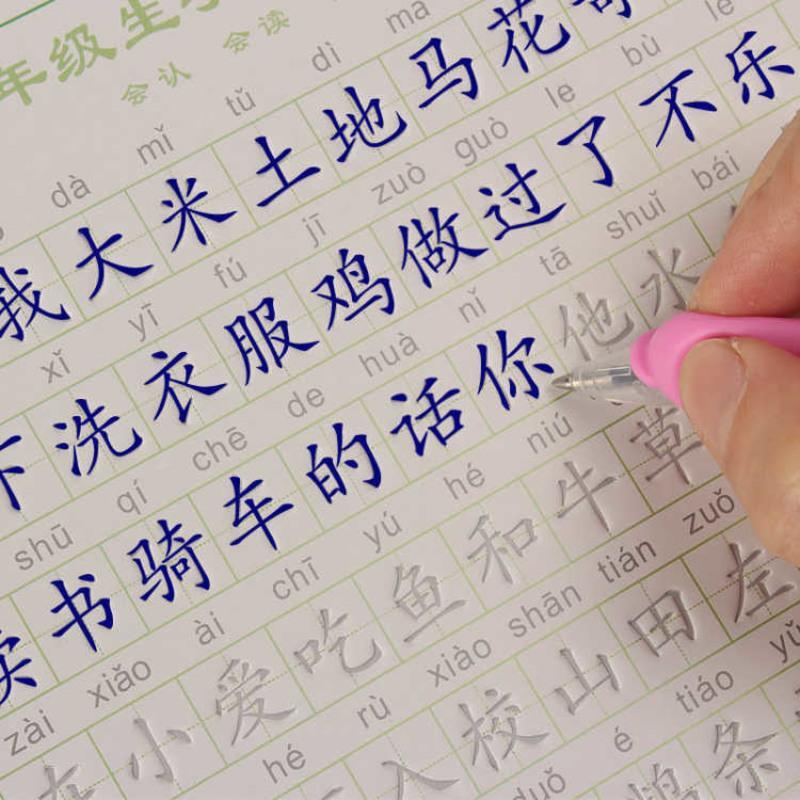 年级生
会认 会读
dà mǐ tǔ dì mǎ
我大米土地马花
xǐ yī fú jī zuò guò le bù lè
洗衣服鸡做过了不乐
shū qí chē de huà nǐ tā shuǐ bái
读书骑车的话你他水
zài xiǎo ài chī yú hé niú
小爱吃鱼和牛草
hé rù xiào shān tián zuǒ
入校山田左
é tiáo
条